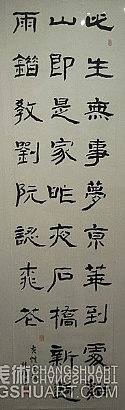 此生無事夢京華到處
山即是家昨夜石橋新
雨錯教劉阮認桃花